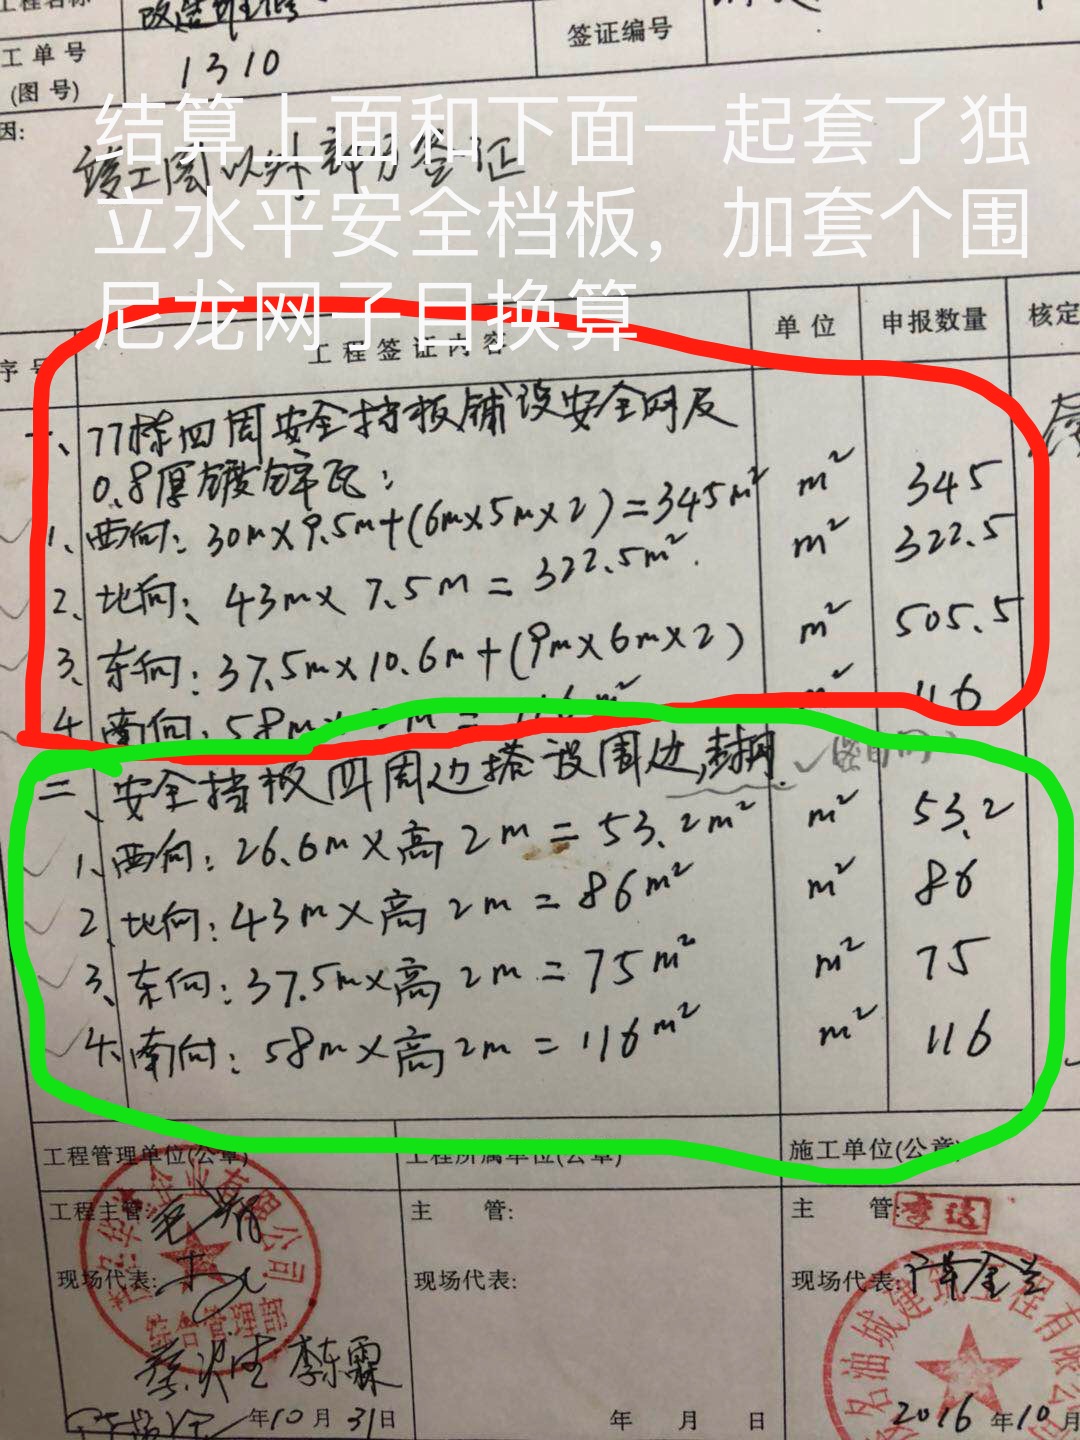 工程名称
改造维修
工单号
(图 号)
1310
签证编号
因:
竣工图以外部分签证
结算上面和下面一起套了独
立水平安全档板，加套个围
尼龙网子目换算
序号
工 程 签 证 内 容
单 位
申报数量
核定
一、77栋四周安全挡板铺设安全网及
0.8厚镀锌瓦：
1、西向：30m×9.5m+(6m×5m×2)=345m² m² 345
2、北向：43m×7.5m=322.5m². m² 322.5
3、东向：37.5m×10.6m+(9m×6m×2) m² 505.5
4、南向：58m×2m=116m² m² 116
二、安全挡板四周边搭设围边,封网.
1、西向：26.6m×高2m=53.2m² m² 53.2
2、北向：43m×高2m=86m² m² 86
3、东向：37.5m×高2m=75m² m² 75
4、南向：58m×高2m=116m² m² 116
工程管理单位(公章)
工程所属单位(公章)
施工单位(公章)
工程主管
主 管:
主 管:
现场代表:
现场代表:
现场代表:
综合管理部
李东霖
年10月31日
年 月 日
2016年10月